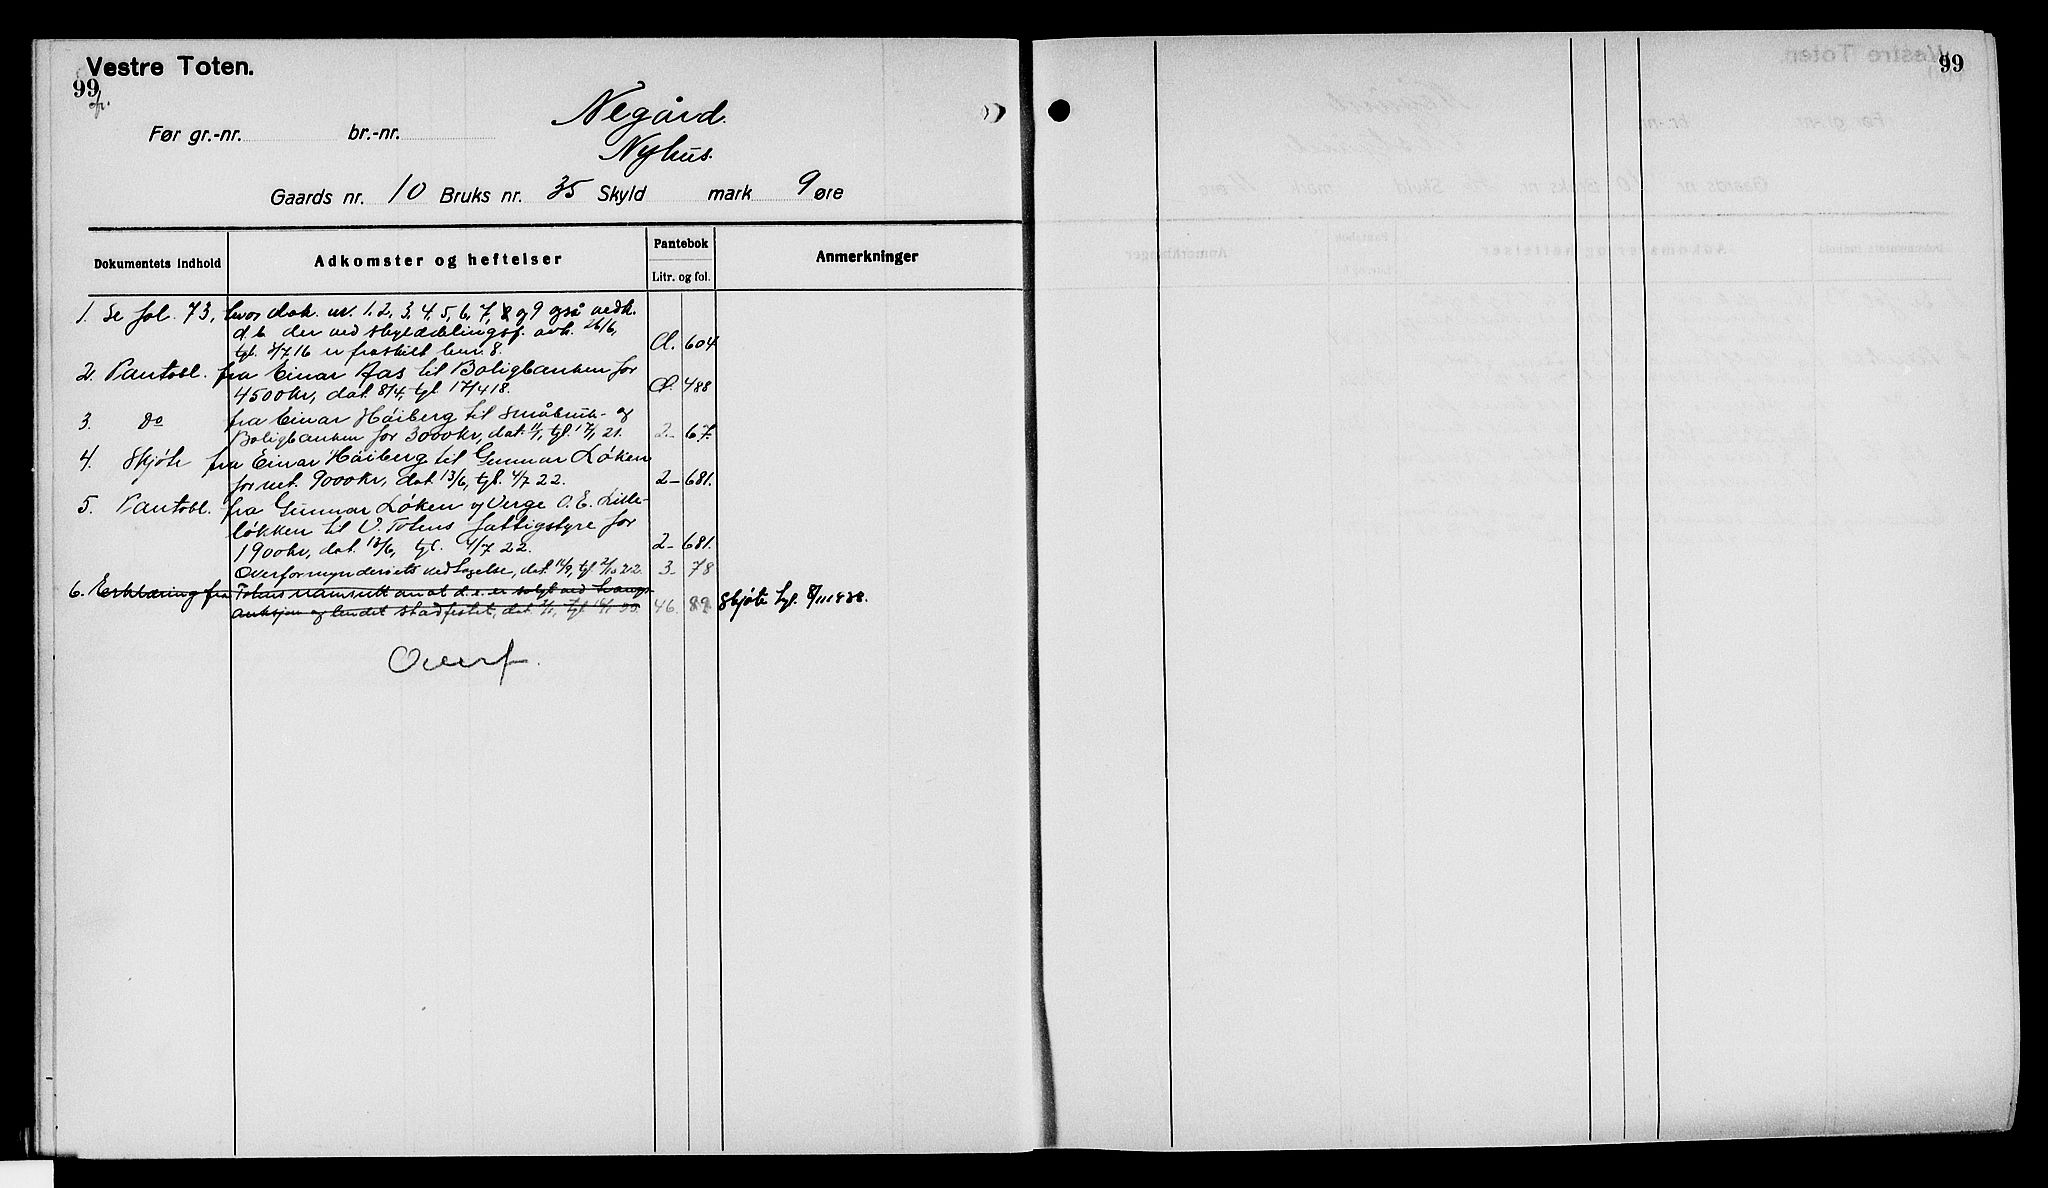 Vestre Toten.
99
Før gr.-nr. br.-nr.
Negård.
Nyhus.
Gaards nr. 10 Bruks nr. 35 Skyld mark 9 øre
Dokumentets indhold Adkomster og heftelser Pantebok Litr. og fol. Anmerkninger
1. Se fol. 73, hvor dok. nr. 1, 2, 3, 4, 5, 6, 7, 8 og 9 også vedk.
d. b. der ved skylddelingsf. avh. 26/6,
tgl. 3/7 16 er fraskilt brnr. 8. Cl. 604
2. Pantobl. fra Einar Aas til Boligbanken for
4500 kr, dat. 8/4, tgl. 17/4 18. Cl. 488
3. Do fra Einar Høiberg til Småbruk- og
Boligbanken for 3000 kr, dat. 11/1, tgl. 17/1 21. 2- 67.
4. Skjøte fra Einar Høiberg til Gunnar Løken
for bet. 9000 kr, dat. 13/6, tgl. 4/7 22. 2- 681.
5. Pantobl. fra Gunnar Løken og Verge O. E. Lille-
løkken til V. Totens fattigstyre for
1900 kr, dat. 13/6, tgl. 4/7 22. 2- 681.
Overformynderiets vedtagelse, dat. 11/9, tgl. 2/10 22. 3- 78
6. Erklæring fra Totens namsrett om at d. e. er solgt ved tvangs-
auksjon og budet stadfestet, dat. tgl. 46. 89. Skjøte tgl. 8/11 1938.
Overf.
99